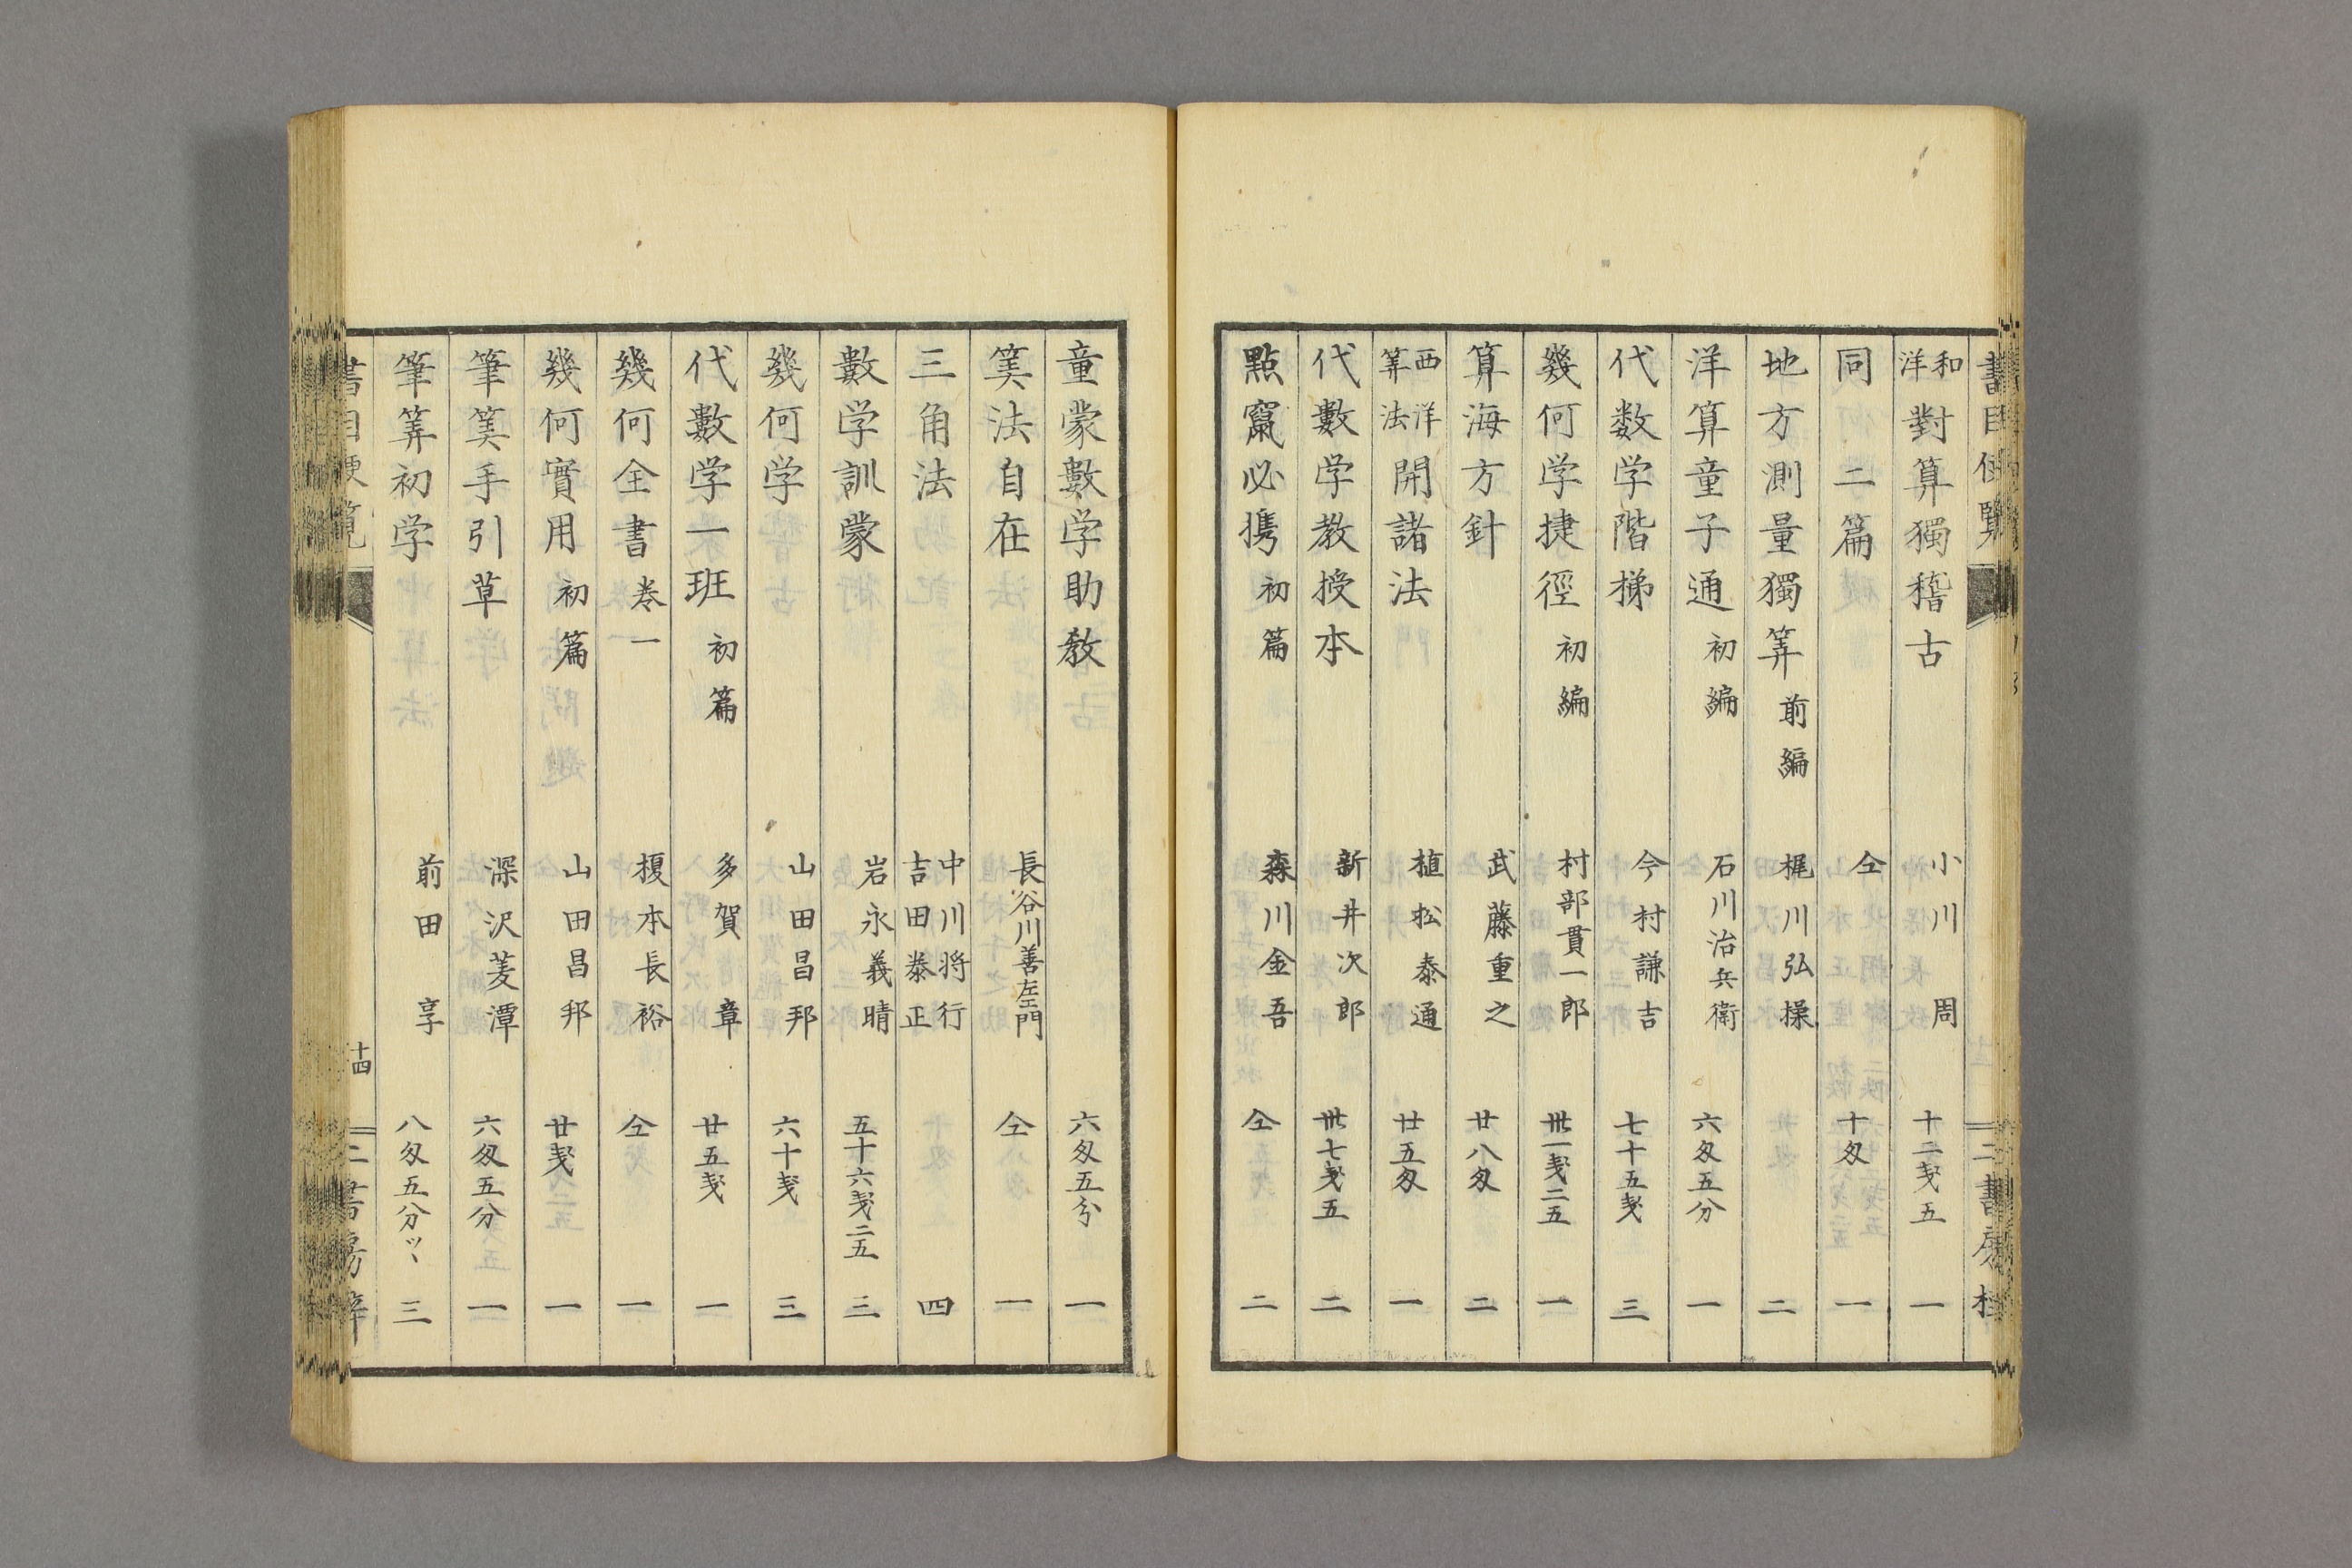 書目便覧
二書房梓
和洋對算獨稽古 小川周 十二戔五 一
同二篇 仝 十匁 一
地方測量獨筭前編 梶川弘操 二
洋算童子通初編 石川治兵衛 六匁五分 一
代数学階梯 今村謙吉 七十五戔 三
幾何学捷徑初編 村部貫一郎 卅一戔二五 一
算海方針 武藤重之 廿八匁 二
西洋筭法開諸法 植松泰通 廿五匁 一
代數学教授本 新井次郎 卅七戔五 二
點竄必携初篇 森川金吾 仝 二
童蒙數学助教 六匁五分 一
筭法自在 長谷川善左エ門 仝 一
三角法 中川将行 吉田泰正 四
數学訓蒙 岩永義晴 五十六戔二五 三
幾何学 山田昌邦 六十戔 三
代數学一班初篇 多賀章 廿五戔 一
幾何全書巻一 榎本長裕 仝 一
幾何實用初篇 山田昌邦 廿戔 一
筆筭手引草 深沢菱潭 六匁五分 一
筆筭初学 前田享 八匁五分ツヽ 三
書目便覧
十四
二書房梓